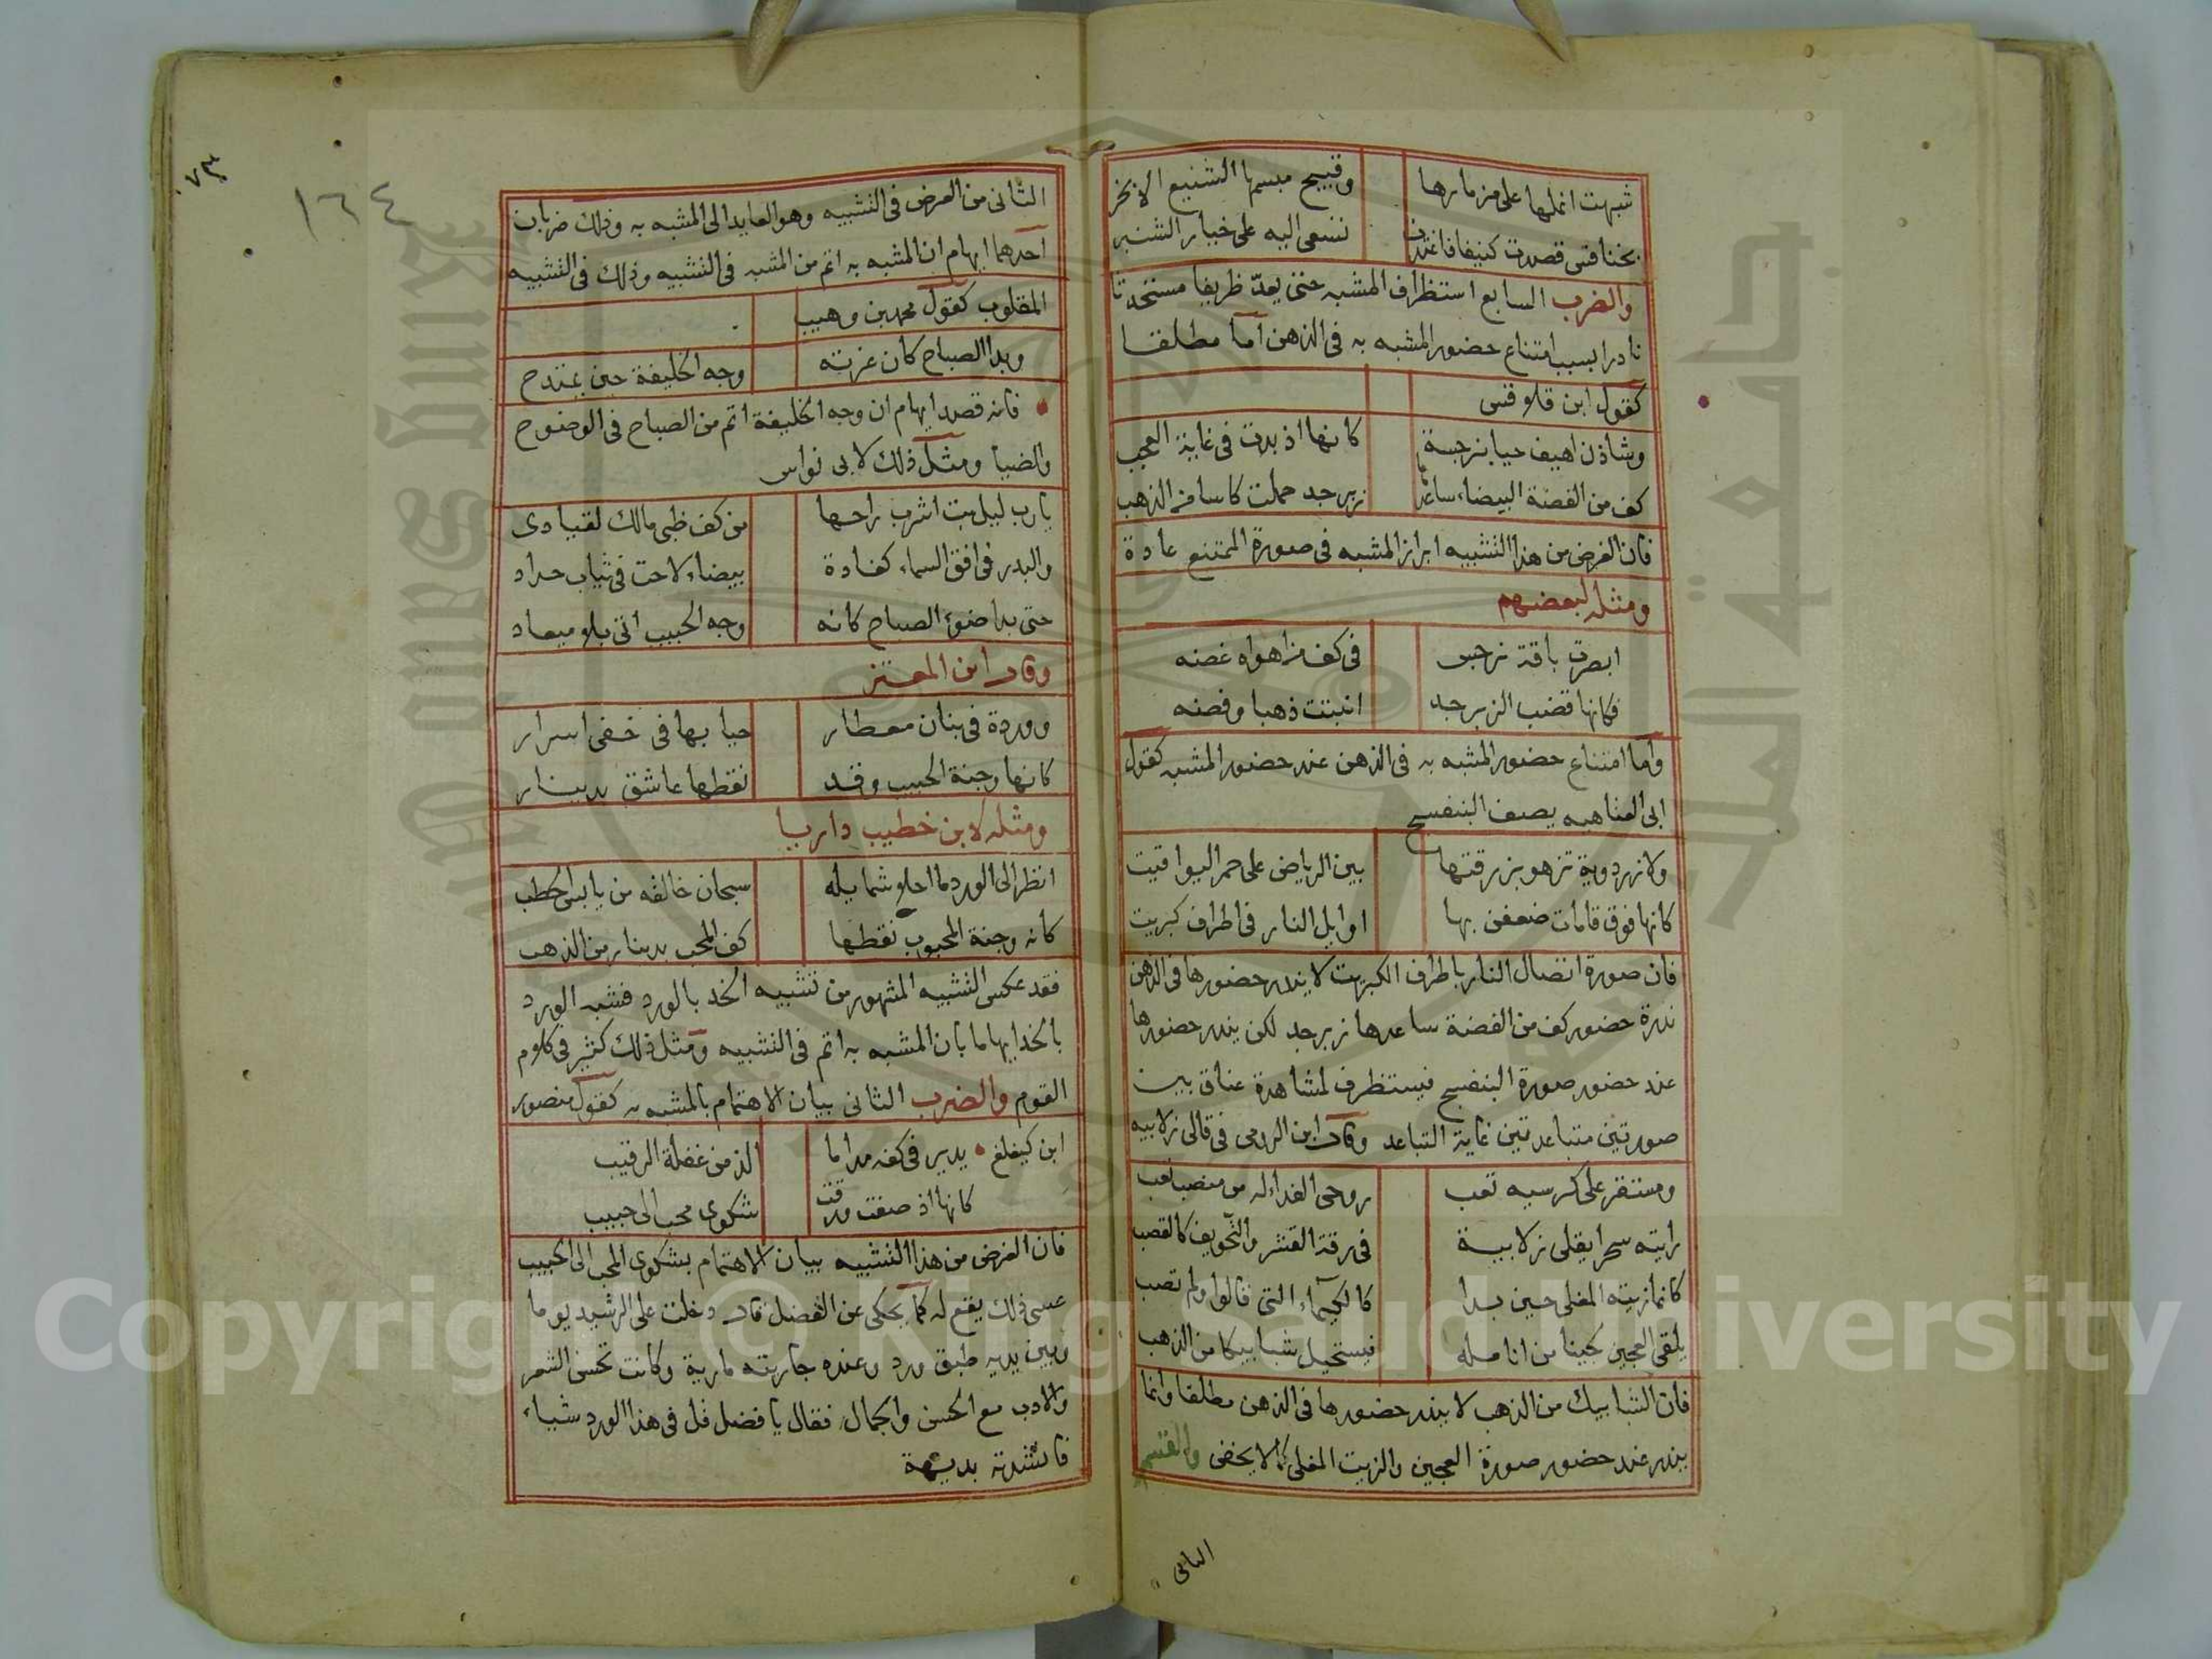 شبهت انملها على مزمارها وقبيح مبسمها الشنيع الابخر
بخنافس قصدت كنيفا فاغتدت تسعى اليه على خيار الشنبر
والضرب السابع استظراف المشبه حتى يعدّ ظريفا مستحدثا
نادرا بسبب امتناع حضور المشبه به فى الذهن اما مطلقا
كقول ابن قلاوقس
وشاذن اهيف حيا بنرجسة كانها اذ بدت فى غاية العجب
كف من الفضة البيضاء ساعدها زبرجد حملت كاسا من الذهب
فان الغرض من هذا التشبيه ابراز المشبه فى صورة الممتنع عادة
ومثله لبعضهم
ابصرت باقة نرجس فى كف من اهواه غضه
فكانها قضب الزبرجد انبتت ذهبا وفضه
واما امتناع حضور المشبه به فى الذهن عند حضور المشبه كقول
ابى العتاهيه يصف البنفسج
ولازوردية تزهو بزرقتها بين الرياض على حمر اليواقيت
كانها فوق قامات ضعفن بها اوايل النار فى اطراف كبريت
فان صورة اتصال النار باطراف الكبريت لا يندر حضورها فى الذهن
ندرة حضور كف من الفضة ساعدها زبرجد لكن يندر حضورها
عند حضور صورة البنفسج فيستظرف لمشاهدة عناق بين
صورتين متباعدتين غاية التباعد وقال ابن الرومى فى قالى زلابيه
ومستقر على كرسيه تعب روحى الفداء له من منصب تعب
رايته سحرا يقلى زلابية فى رقة القشر والتجويف كالقصب
كانما زيته المغلى حين بدا كالكيمياء التى قالوا ولم تصب
يلقى العجين لجينا من انامله فيستحيل شبابيكا من الذهب
فان الشبابيك من الذهب لا يندر حضورها فى الذهن مطلقا وانما
يندر عند حضور صورة العجين والزيت المغلى كما لا يخفى والقسم
الثانى
١٦٤
الثانى من الغرض فى التشبيه وهو العايد الى المشبه به وذلك ضربان
احدهما ايهام ان المشبه به اتم من المشبه فى التشبيه وذلك فى التشبيه
المقلوب كقول محمد بن وهيب
وبدا الصباح كان غرته وجه الخليفة حين يمتدح
فانه قصد ايهام ان وجه الخليفة اتم من الصباح فى الوضوح
والضيا ومثل ذلك لابى نواس
يارب ليل بت اشرب راحها من كف ظبى مالك لقيادى
والبدر فى افق السماء كغادة بيضاء لاحت فى ثياب حداد
حتى بدا ضوء الصباح كانه وجه الحبيب اتى بلا ميعاد
وقال ابن المعتز
ووردة فى بنان معطار حيا بها فى خفى اسرار
كانها وجنة الحبيب وقد نقطها عاشق بدينار
ومثله لابن خطيب داريا
انظر الى الورد ما احلا شمايله سبحان خالقه من يابس الحطب
كانه وجنة المحبوب نقطها كف المحب بدينار من الذهب
فقد عكس التشبيه المشهور من تشبيه الخد بالورد فشبه الورد
بالخد ايهاما بان المشبه به اتم فى التشبيه ومثل ذلك كثير فى كلام
القوم والضرب الثانى بيان الاهتمام بالمشبه به كقول منصور
ابن كيغلغ يدير فى كفه مداما الذ من غفلة الرقيب
كانها اذ صفت ورقت شكوى محب الى حبيب
فان الغرض من هذا التشبيه بيان الاهتمام بشكوى المحب الى الحبيب
عسى ذلك يقع له كما يحكى عن الفضل قال دخلت على الرشيد يوما
وبين يديه طبق ورد وعنده جاريته مارية وكانت تحسن الشعر
والادب مع الحسن والجمال فقال يا فضل قل فى هذا الورد شياء
فانشدته بديهة
Copyright © King Saud University
جامعة الملك